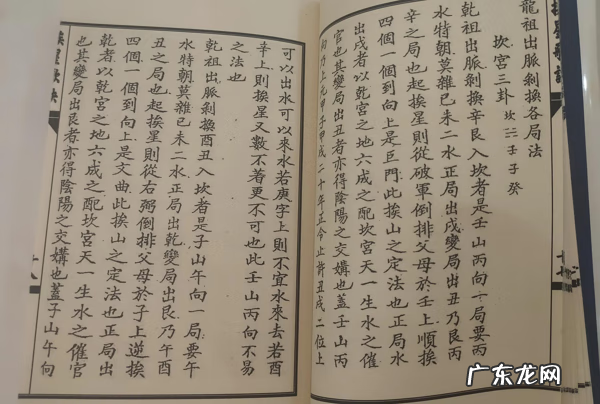 龍祖出脈剝換各局法
坎宮三卦 坎☵壬子癸
乾祖出脈剝換辛艮入坎者是壬山丙向一局要丙
水特朝莫雜巳未二水正局出戌變局出丑乃艮丙
辛之局也起挨星則從破軍倒排父母於壬上順挨
四個一個到向上是巨門此挨山之定法也正局水
出戌者以乾宮之地六成之配坎宮天一生水之催
官也其變局出丑者亦得陰陽之交媾也蓋壬山丙
向乃上元甲子甲戌二十年正令止許丑戌二位上
可以出水可以來水若庚字上則不宜水來去若酉
辛上則挨星又數不著更不可也此壬山丙向不易
之法也
乾祖出脈剝換酉丑入坎者是子山午向一局要午
水特朝莫雜巳未二水正局出乾變局出艮乃午酉
丑之局也起挨星則從右弼倒排父母於子上逆挨
四個一個到向上是文曲此挨山之定法也正局出
乾者以乾宮之地六成之配坎宮天一生水之催官
也其變局出艮者亦得陰陽之交媾也蓋子山午向
十八
广东龙网